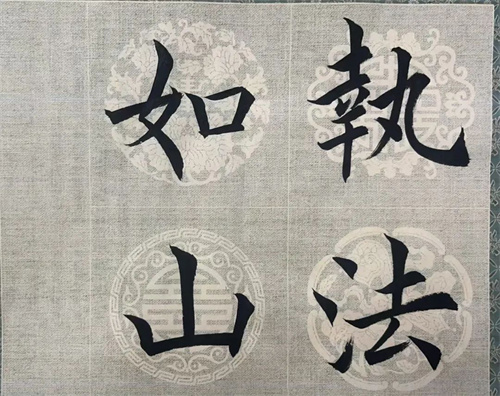 執法
如山